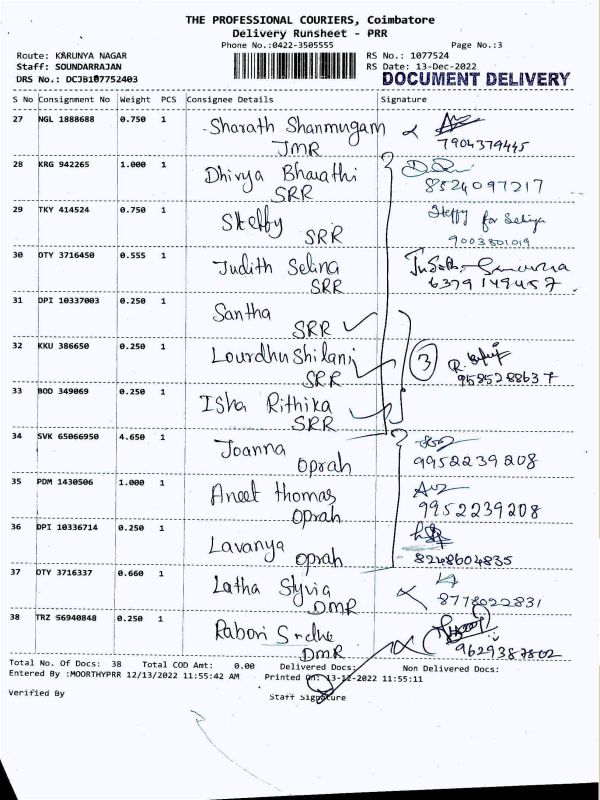 THE PROFESSIONAL COURIERS, Coimbatore
Delivery Runsheet - PRR
Phone No.:0422-3505555 Page No.:3
Route: KARUNYA NAGAR RS No.: 1077524
Staff: SOUNDARRAJAN RS Date: 13-Dec-2022
DRS No.: DCJB107752403 DOCUMENT DELIVERY
S No Consignment No Weight PCS Consignee Details Signature
27 NGL 1888688 0.750 1 Sharath Shanmugam
JMR 7904379445
28 KRG 942265 1.000 1 Dhivya Bharathi
SRR 8524097217
29 TKY 414524 0.750 1 Steffy Steffy for Selija
SRR 9003801019
30 OTY 3716450 0.555 1 Judith Selina
SRR 6379149457
31 DPI 10337003 0.250 1 Santha
SRR
32 KKU 386650 0.250 1 Lourdhu Shilani 3
SRR 9585288637
33 BOD 349069 0.250 1 Isha Rithika
SRR
34 SVK 65066950 4.650 1 Joanna
Oprah 9952239208
35 PDM 1430506 1.000 1 Aneet Thomas
Oprah 9952239208
36 DPI 10336714 0.250 1 Lavanya
Oprah 8248604835
37 OTY 3716337 0.660 1 Latha Slyvia
DMR 8778022831
38 TRZ 56940848 0.250 1 Rabori
DMR 9629387802
Total No. Of Docs: 38 Total COD Amt: 0.00 Delivered Docs: Non Delivered Docs:
Entered By :MOORTHYPRR 12/13/2022 11:55:42 AM Printed On: 13-12-2022 11:55:11
Verified By Staff Signature